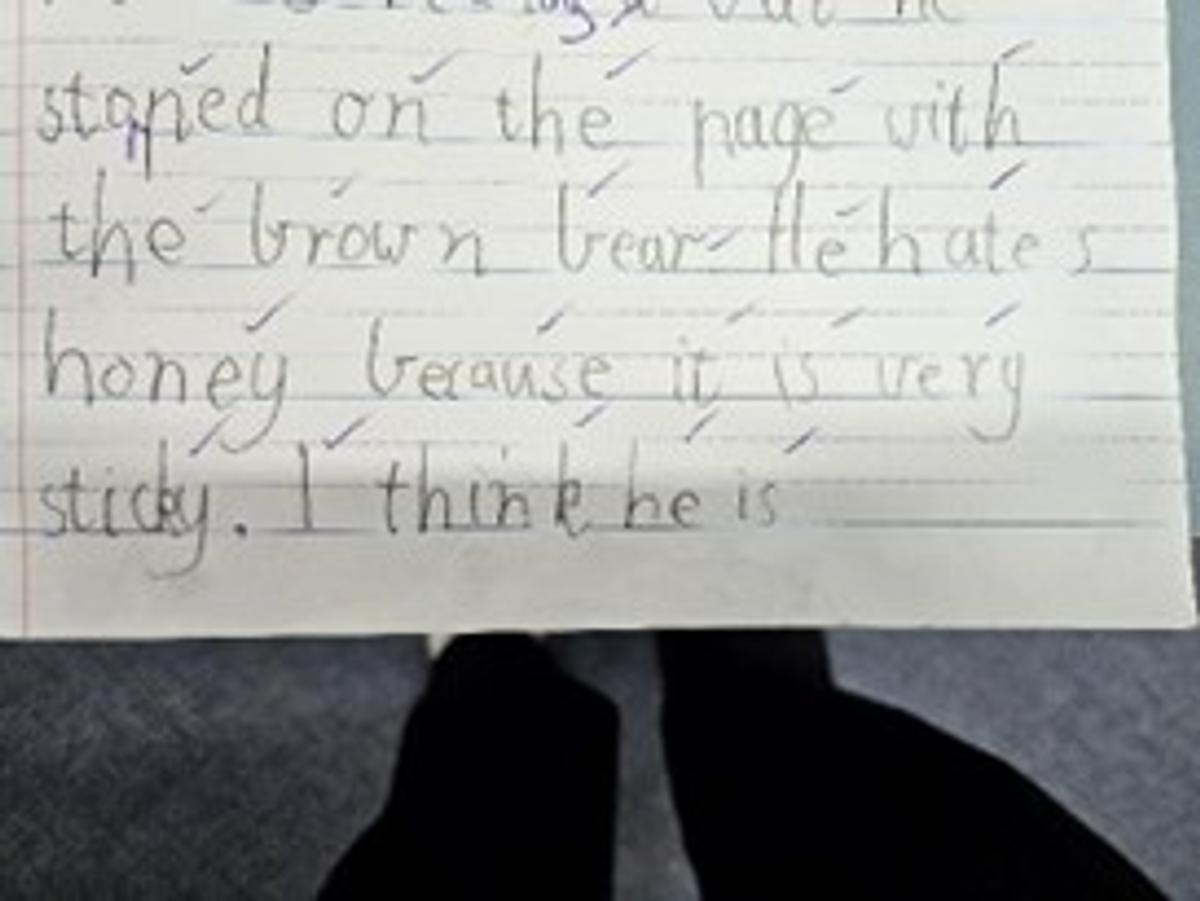 but he
stopped on the page with
the brown bear He hates
honey because it is very
sticky. I think he is